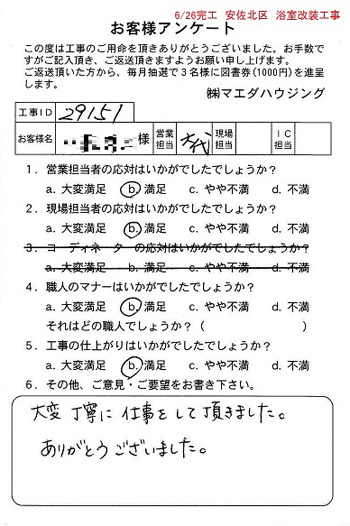 6/26完工 安佐北区 浴室改装工事
お客様アンケート
この度は工事のご用命を頂きありがとうございました。お手数で
すがご記入頂き、ご返送頂きますようお願い申し上げます。
ご返送頂いた方から、毎月抽選で３名様に図書券(1000円)を進呈
します。
㈱マエダハウジング
工事ＩＤ 29151
お客様名 様 営業担当 現場担当 ＩＣ担当
１．営業担当者の応対はいかがでしたでしょうか？
a. 大変満足 b. 満足 c. やや不満 d. 不満
２．現場担当者の応対はいかがでしたでしょうか？
a. 大変満足 b. 満足 c. やや不満 d. 不満
３．コーディネーターの応対はいかがでしたでしょうか？
a. 大変満足 b. 満足 c. やや不満 d. 不満
４．職人のマナーはいかがでしたでしょうか？
a. 大変満足 b. 満足 c. やや不満 d. 不満
それはどの職人でしょうか？（ ）
５．工事の仕上がりはいかがでしたでしょうか？
a. 大変満足 b. 満足 c. やや不満 d. 不満
６．その他、ご意見・ご要望をお書き下さい。
大変 丁寧に 仕事をして頂きました。
ありがとうございました。